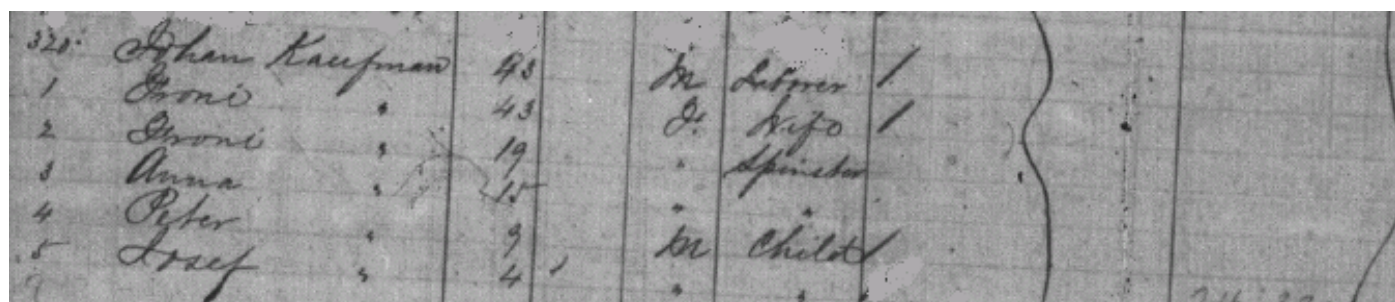 320. Johan Kaufman 43 M Laborer /
1 Froni " 43 F. Wife /
2 Froni " 19 " Spinster
3 Anna " 15 " "
4 Peter " 9 M Child /
5 Josef " 4 " "